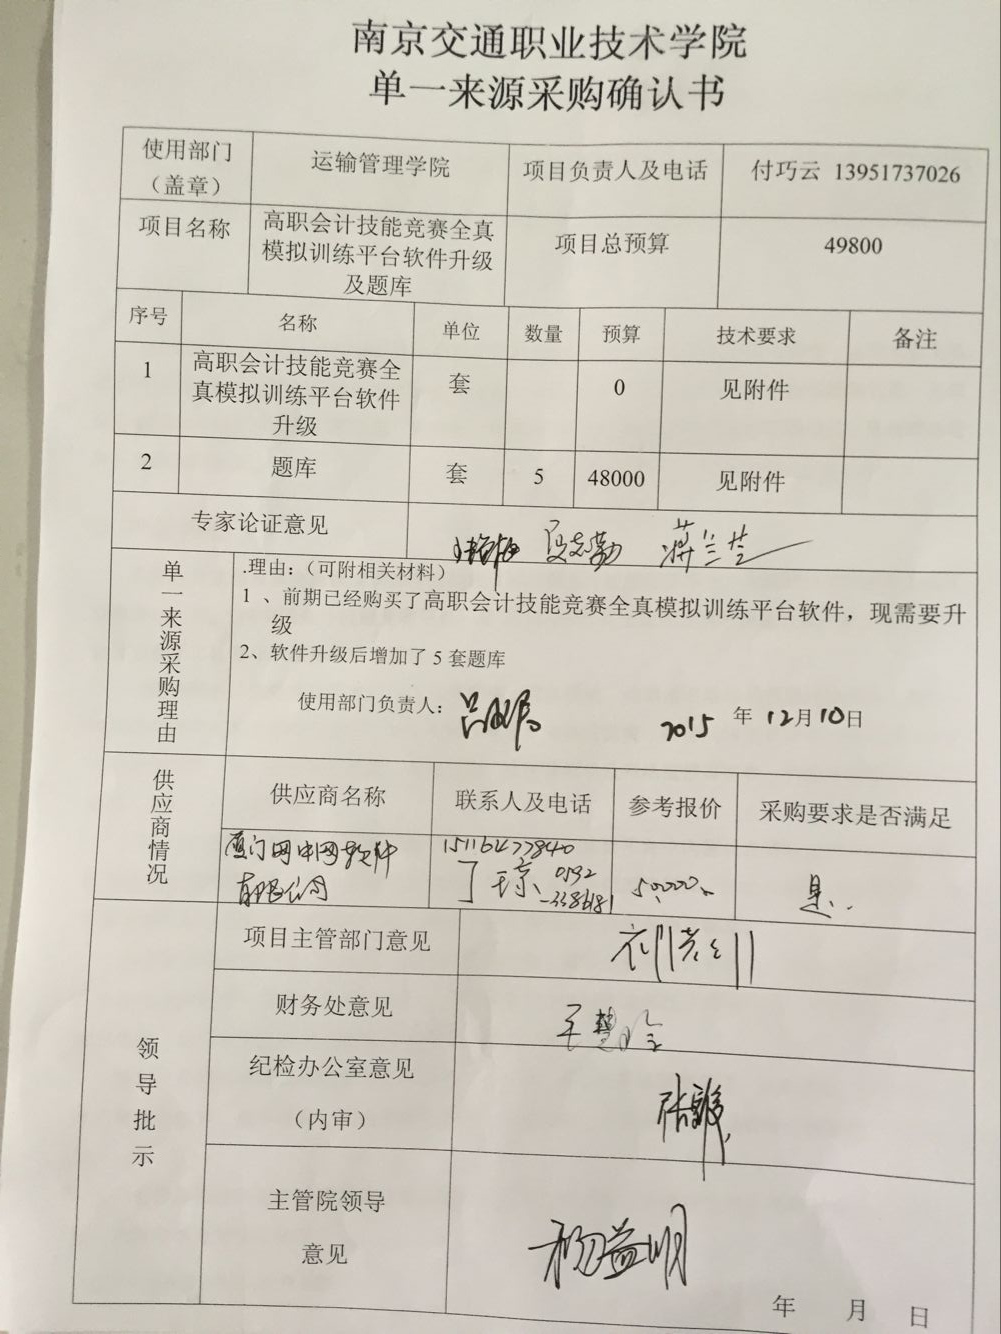 南京交通职业技术学院
单一来源采购确认书
使用部门
（盖章）
运输管理学院
项目负责人及电话
付巧云 13951737026
项目名称
高职会计技能竞赛全真
模拟训练平台软件升级
及题库
项目总预算
49800
序号
名称
单位
数量
预算
技术要求
备注
1
高职会计技能竞赛全
真模拟训练平台软件
升级
套
0
见附件
2
题库
套
5
48000
见附件
专家论证意见
蒋兰芝
单一来源采购理由
.理由：（可附相关材料）
1 、前期已经购买了高职会计技能竞赛全真模拟训练平台软件，现需要升
级
2、软件升级后增加了 5 套题库
使用部门负责人：
2015 年 12月10日
供应商情况
供应商名称
联系人及电话
参考报价
采购要求是否满足
厦门网中网软件
有限公司
15116477840
丁琼 0592
-3386181
50000
是
领导批示
项目主管部门意见
财务处意见
王慧玲
纪检办公室意见
（内审）
主管院领导
意见
杨益明
年 月 日